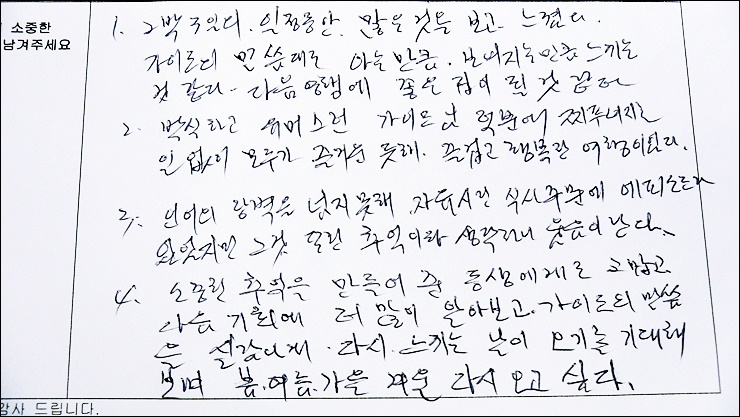 소중한
남겨주세요
1. 2박 3일의. 일정동안. 많은 것을 보고. 느꼈다.
가이드의 말씀대로 아는 만큼. 보여지는만큼 느끼는
것 같다. 다음 여행에 좋은 점이 될 것 같다
2. 박식하고 유머스런 가이드님 덕분에 찌푸려지는
일 없이 모두가 즐거운 듯해. 즐겁고 행복한 여행이었다.
3. 언어의 장벽을 넘지 못해. 자유시간 식사주문에 에피소드가
있었지만 그것 또한 추억이라 생각하니 웃음이 난다.
4. 소중한 추억을 만들어 준 동생에게도 고맙고
다음 기회에 더 많이 알아보고. 가이드의 말씀
을 실감나게. 다시. 느끼는 날이 오기를 기대해
보며 봄.여름.가을 겨울 다시 오고 싶다.
감사 드립니다.